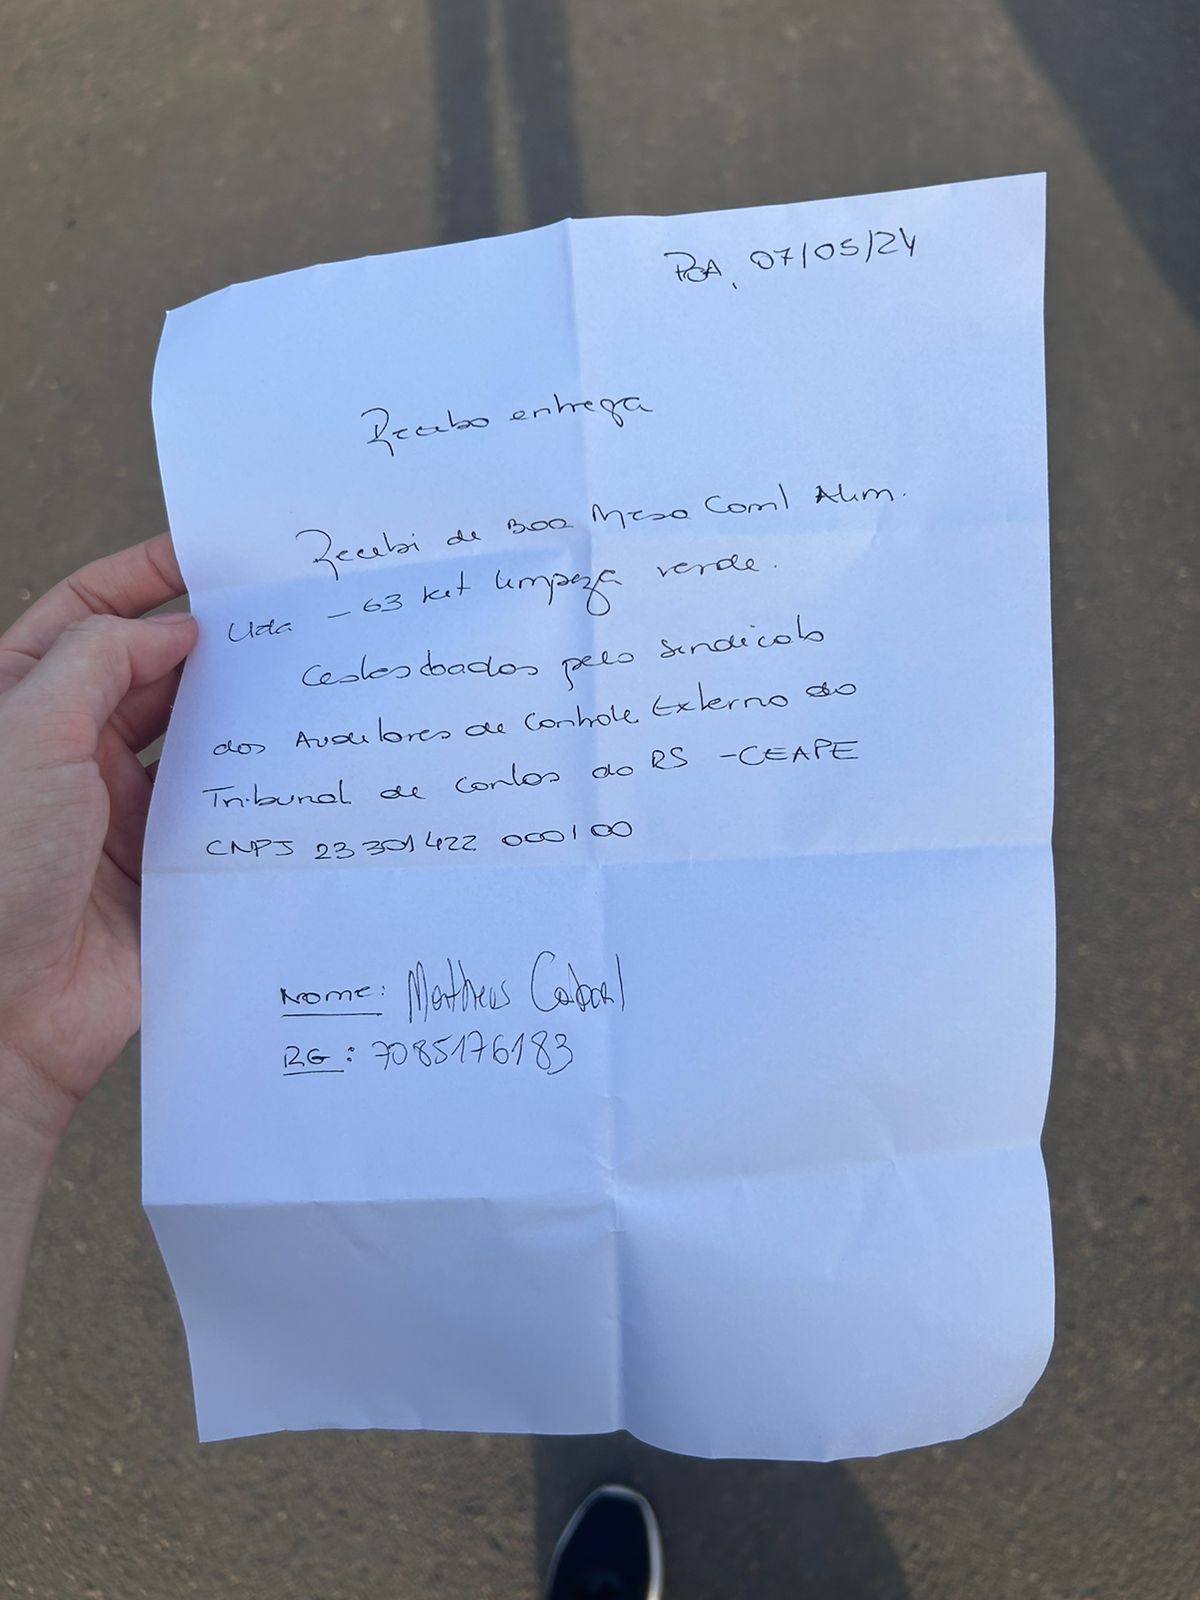 POA, 07/05/24
Recibo entrega
Recebi de Boa Mesa Coml Alim.
Ltda - 63 kit limpeza verde.
Cestas doadas pelo Sindicato
dos Auditores de Controle Externo do
Tribunal de Contas do RS - CEAPE
CNPJ 23 301 422 0001 00
Nome: Matheus Cabral
RG: 7085176183